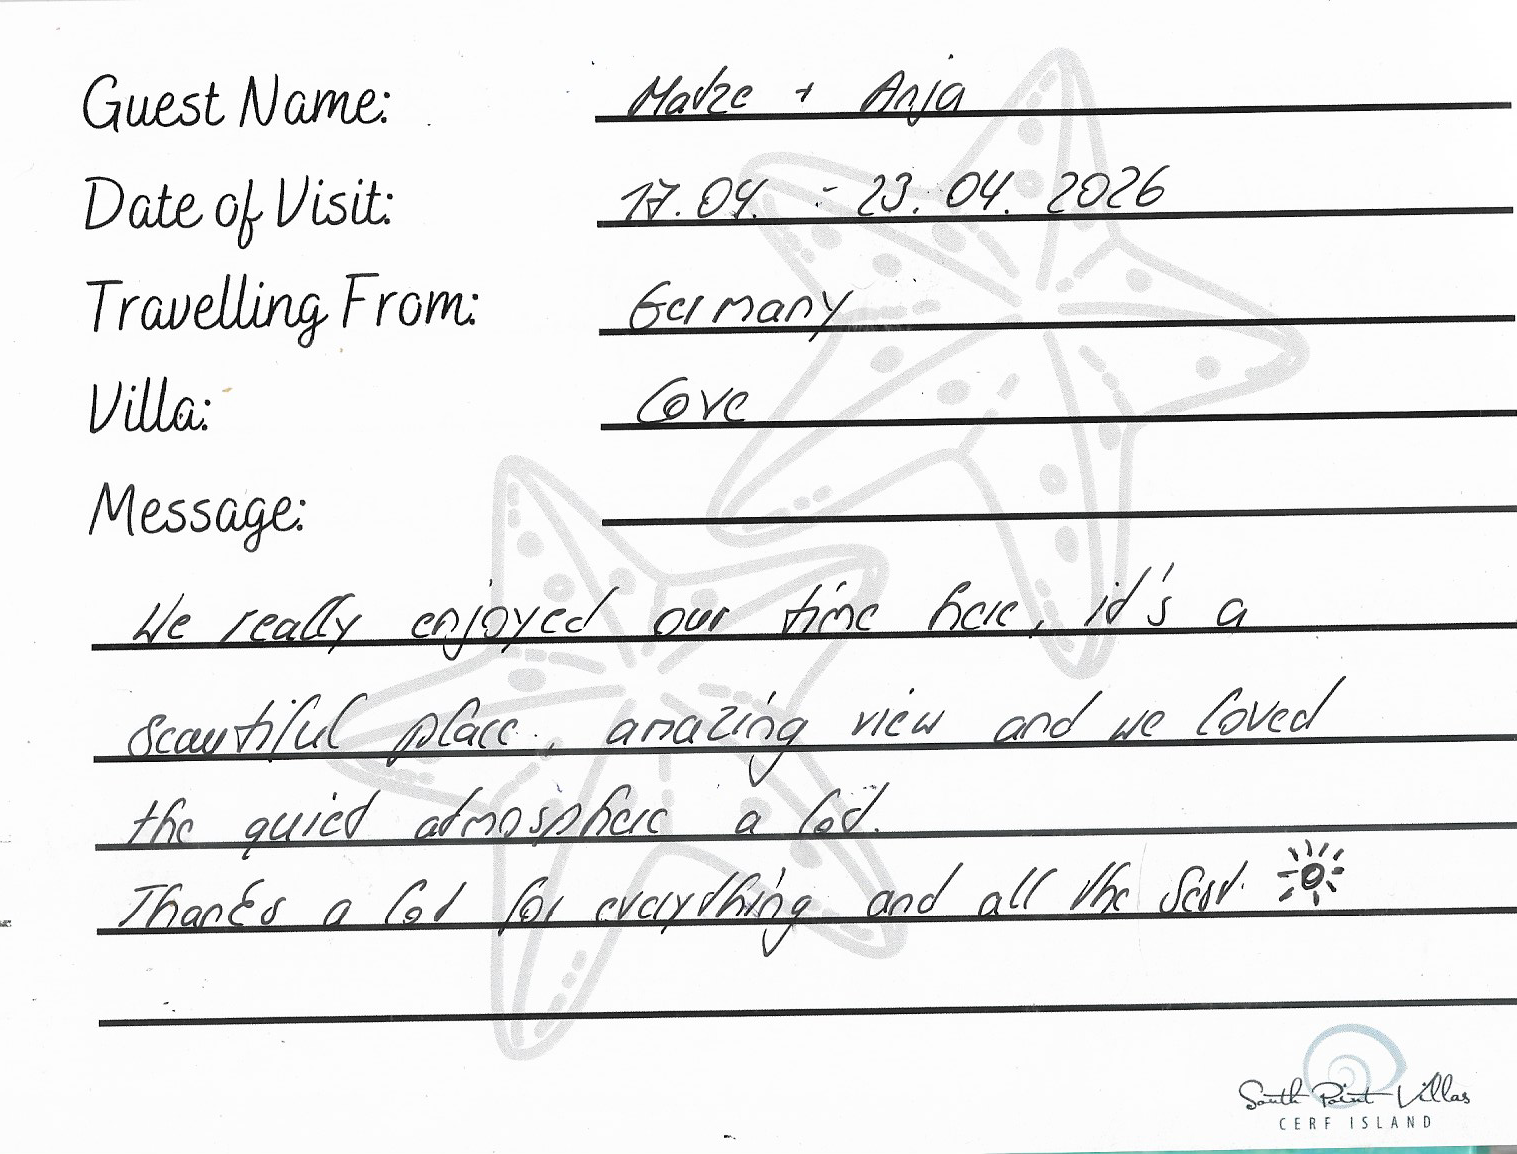 Guest Name: Matze + Anja
Date of Visit: 17.04. - 23.04.2026
Travelling From: Germany
Villa: Cove
Message:
We really enjoyed our time here, it's a
beautiful place, amazing view and we loved
the quiet atmosphere a lot.
Thanks a lot for everything and all the best.
South Point Villas
CERF ISLAND